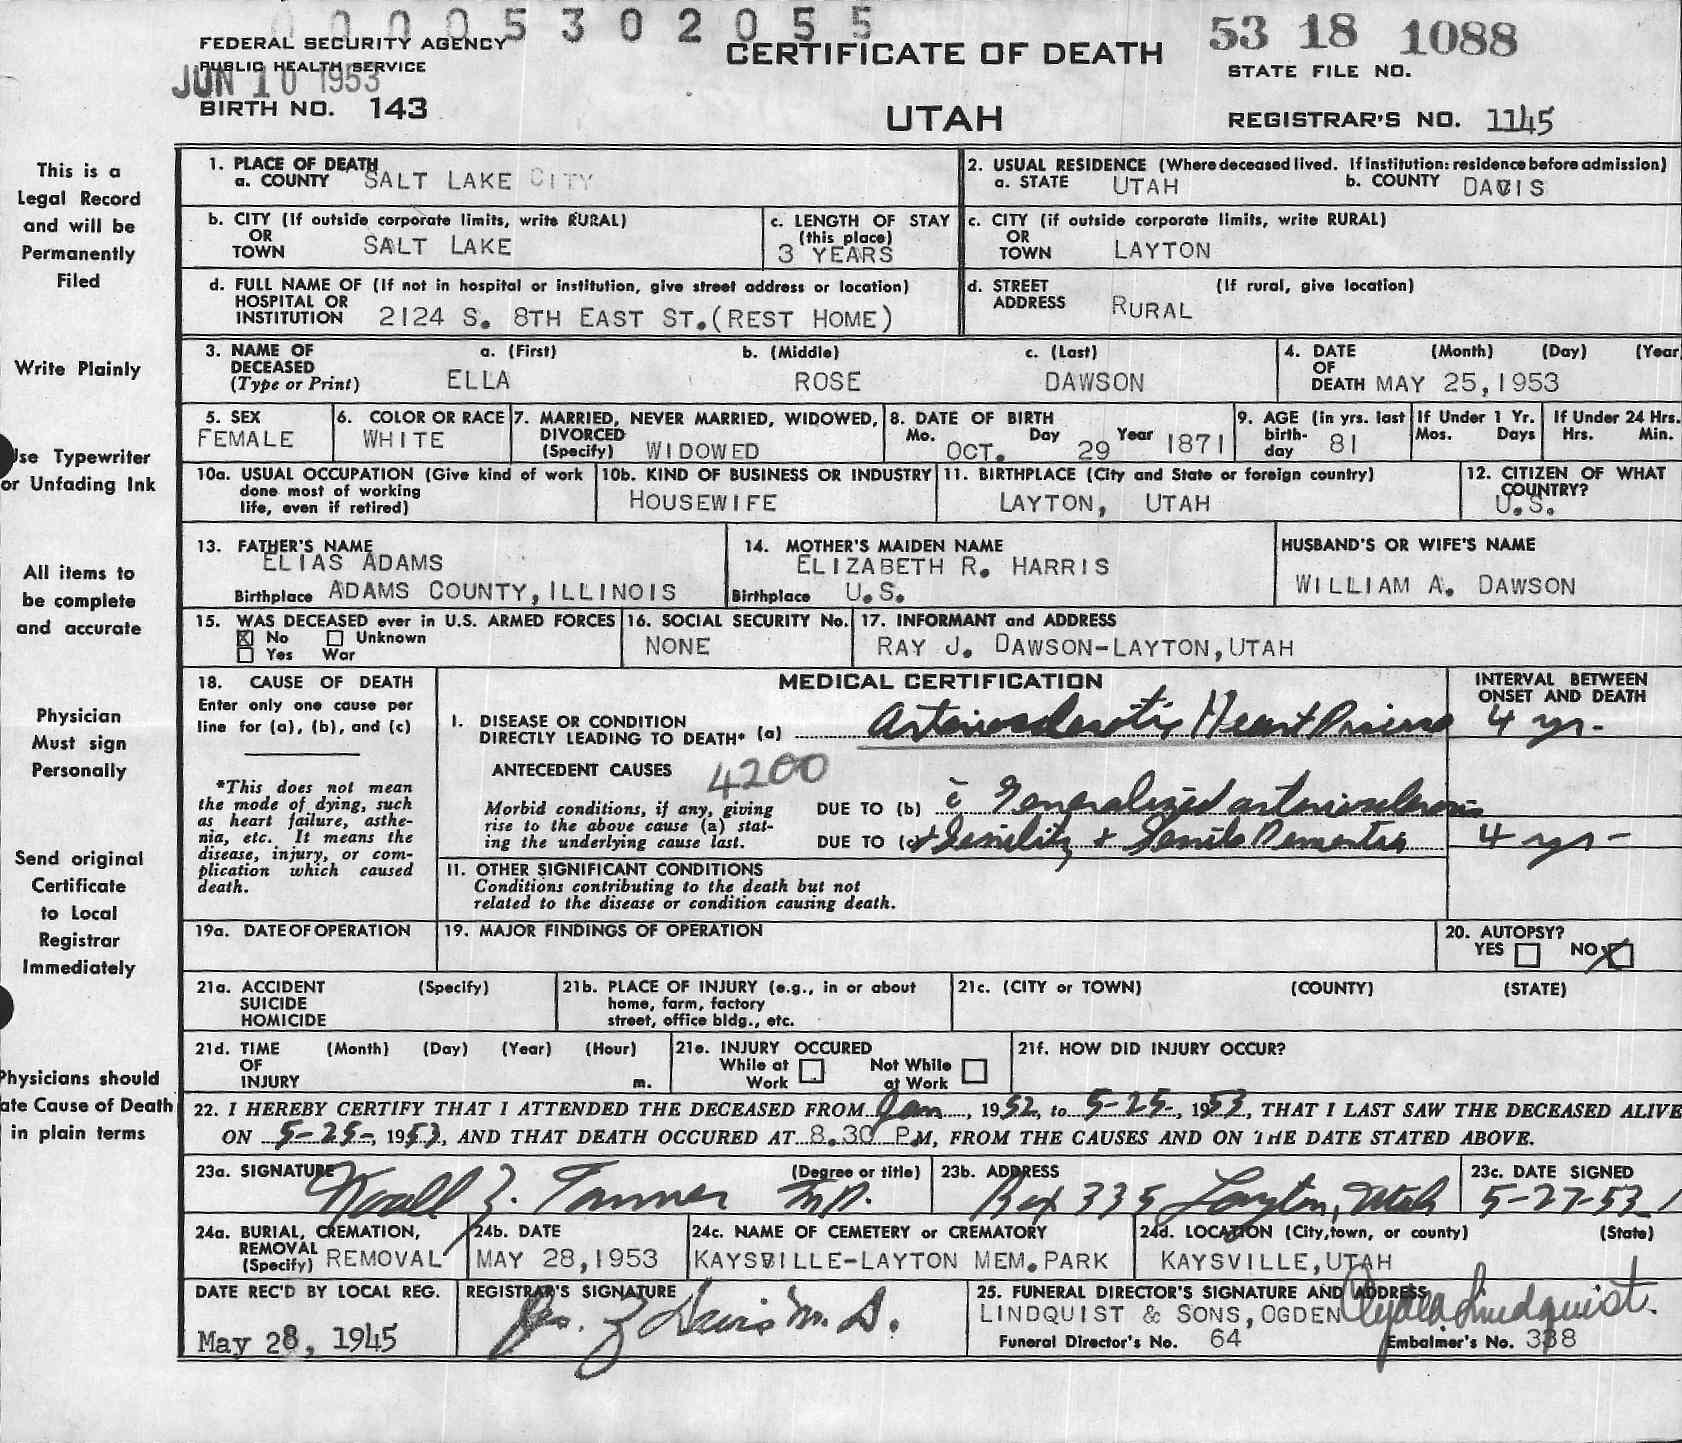 0 0 0 5 3 0 2 0 5 5
53 18 1088
FEDERAL SECURITY AGENCY
CERTIFICATE OF DEATH
PUBLIC HEALTH SERVICE
STATE FILE NO.
JUN 10 1953
BIRTH NO. 143
UTAH
REGISTRAR'S NO. 1145
This is a
Legal Record
and will be
Permanently
Filed
Write Plainly
Use Typewriter
or Unfading Ink
All items to
be complete
and accurate
Physician
Must sign
Personally
Send original
Certificate
to Local
Registrar
Immediately
Physicians should
ate Cause of Death
in plain terms
1. PLACE OF DEATH
a. COUNTY SALT LAKE CITY
2. USUAL RESIDENCE (Where deceased lived. If institution: residence before admission)
a. STATE UTAH b. COUNTY DAVIS
b. CITY (If outside corporate limits, write RURAL)
OR
TOWN SALT LAKE
c. LENGTH OF STAY
(this place)
3 YEARS
c. CITY (if outside corporate limits, write RURAL)
OR
TOWN LAYTON
d. FULL NAME OF (If not in hospital or institution, give street address or location)
HOSPITAL OR
INSTITUTION 2124 S. 8TH EAST ST.(REST HOME)
d. STREET (If rural, give location)
ADDRESS RURAL
3. NAME OF a. (First) b. (Middle) c. (Last)
DECEASED
(Type or Print) ELLA ROSE DAWSON
4. DATE (Month) (Day) (Year
OF
DEATH MAY 25,1953
5. SEX
FEMALE
6. COLOR OR RACE
WHITE
7. MARRIED, NEVER MARRIED, WIDOWED,
DIVORCED
(Specify) WIDOWED
8. DATE OF BIRTH
Mo. OCT. Day 29 Year 1871
9. AGE (in yrs. last
birth-
day 81
If Under 1 Yr.
Mos. Days
If Under 24 Hrs.
Hrs. Min.
10a. USUAL OCCUPATION (Give kind of work
done most of working
life, even if retired)
10b. KIND OF BUSINESS OR INDUSTRY
HOUSEWIFE
11. BIRTHPLACE (City and State or foreign country)
LAYTON, UTAH
12. CITIZEN OF WHAT
COUNTRY?
U.S.
13. FATHER'S NAME
ELIAS ADAMS
Birthplace ADAMS COUNTY, ILLINOIS
14. MOTHER'S MAIDEN NAME
ELIZABETH R. HARRIS
Birthplace U.S.
HUSBAND'S OR WIFE'S NAME
WILLIAM A. DAWSON
15. WAS DECEASED ever in U.S. ARMED FORCES
No Unknown
Yes War
16. SOCIAL SECURITY No.
NONE
17. INFORMANT and ADDRESS
RAY J. DAWSON-LAYTON,UTAH
18. CAUSE OF DEATH
Enter only one cause per
line for (a), (b), and (c)
*This does not mean
the mode of dying, such
as heart failure, asthe-
nia, etc. It means the
disease, injury, or com-
plication which caused
death.
MEDICAL CERTIFICATION
INTERVAL BETWEEN
ONSET AND DEATH
I. DISEASE OR CONDITION
DIRECTLY LEADING TO DEATH* (a) Arteriosclerotic Heart Disease 4 yr.
ANTECEDENT CAUSES 4200
Morbid conditions, if any, giving
rise to the above cause (a) stat-
ing the underlying cause last.
DUE TO (b) c̄ Generalized arteriosclerosis
DUE TO (c) + Senility + Senile Dementia 4 yrs
11. OTHER SIGNIFICANT CONDITIONS
Conditions contributing to the death but not
related to the disease or condition causing death.
19a. DATE OF OPERATION
19. MAJOR FINDINGS OF OPERATION
20. AUTOPSY?
YES NO X
21a. ACCIDENT (Specify)
SUICIDE
HOMICIDE
21b. PLACE OF INJURY (e.g., in or about
home, farm, factory
street, office bldg., etc.
21c. (CITY or TOWN) (COUNTY) (STATE)
21d. TIME (Month) (Day) (Year) (Hour)
OF
INJURY m.
21e. INJURY OCCURED
While at Not While
Work at Work
21f. HOW DID INJURY OCCUR?
22. I HEREBY CERTIFY THAT I ATTENDED THE DECEASED FROM Jan, 1952, to 5-25-, 1953, THAT I LAST SAW THE DECEASED ALIVE
ON 5-25-, 1953, AND THAT DEATH OCCURED AT 8.30 P.M, FROM THE CAUSES AND ON THE DATE STATED ABOVE.
23a. SIGNATURE (Degree or title)
Noall Z. Tanner M.D.
23b. ADDRESS
Box 335 Layton, Utah
23c. DATE SIGNED
5-27-53
24a. BURIAL, CREMATION,
REMOVAL
(Specify) REMOVAL
24b. DATE
MAY 28,1953
24c. NAME OF CEMETERY or CREMATORY
KAYSVILLE-LAYTON MEM.PARK
24d. LOCATION (City,town, or county) (State)
KAYSVILLE,UTAH
DATE REC'D BY LOCAL REG.
May 28, 1945
REGISTRAR'S SIGNATURE
Jos. Z Davis M.D.
25. FUNERAL DIRECTOR'S SIGNATURE AND ADDRESS
LINDQUIST & SONS,OGDEN Lindquist.
Funeral Director's No. 64 Embalmer's No. 338